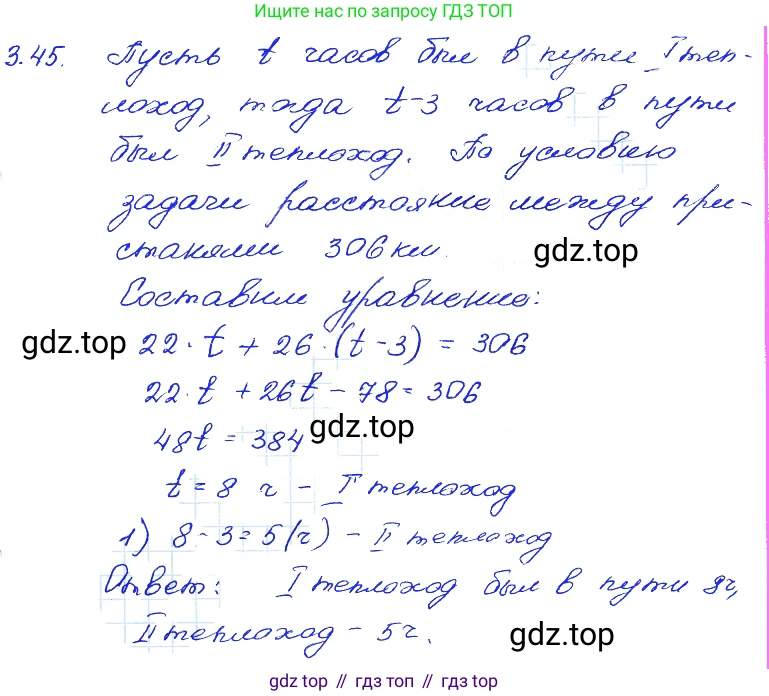 Ищите нас по запросу ГДЗ ТОП
3.45. Пусть t часов был в пути I теп-
лоход, тогда t-3 часов в пути
был II теплоход. По условию
задачи расстояние между при-
станями 306 км.
gdz.top
Составим уравнение:
gdz.top 22·t + 26·(t-3) = 306
22·t + 26t - 78 = 306
48t = 384 gdz.top
t = 8 ч - I теплоход
1) 8 - 3 = 5 (ч) - II теплоход
Ответ: I теплоход был в пути 8ч,
II теплоход - 5ч. gdz.top
gdz.top // гдз топ // gdz.top